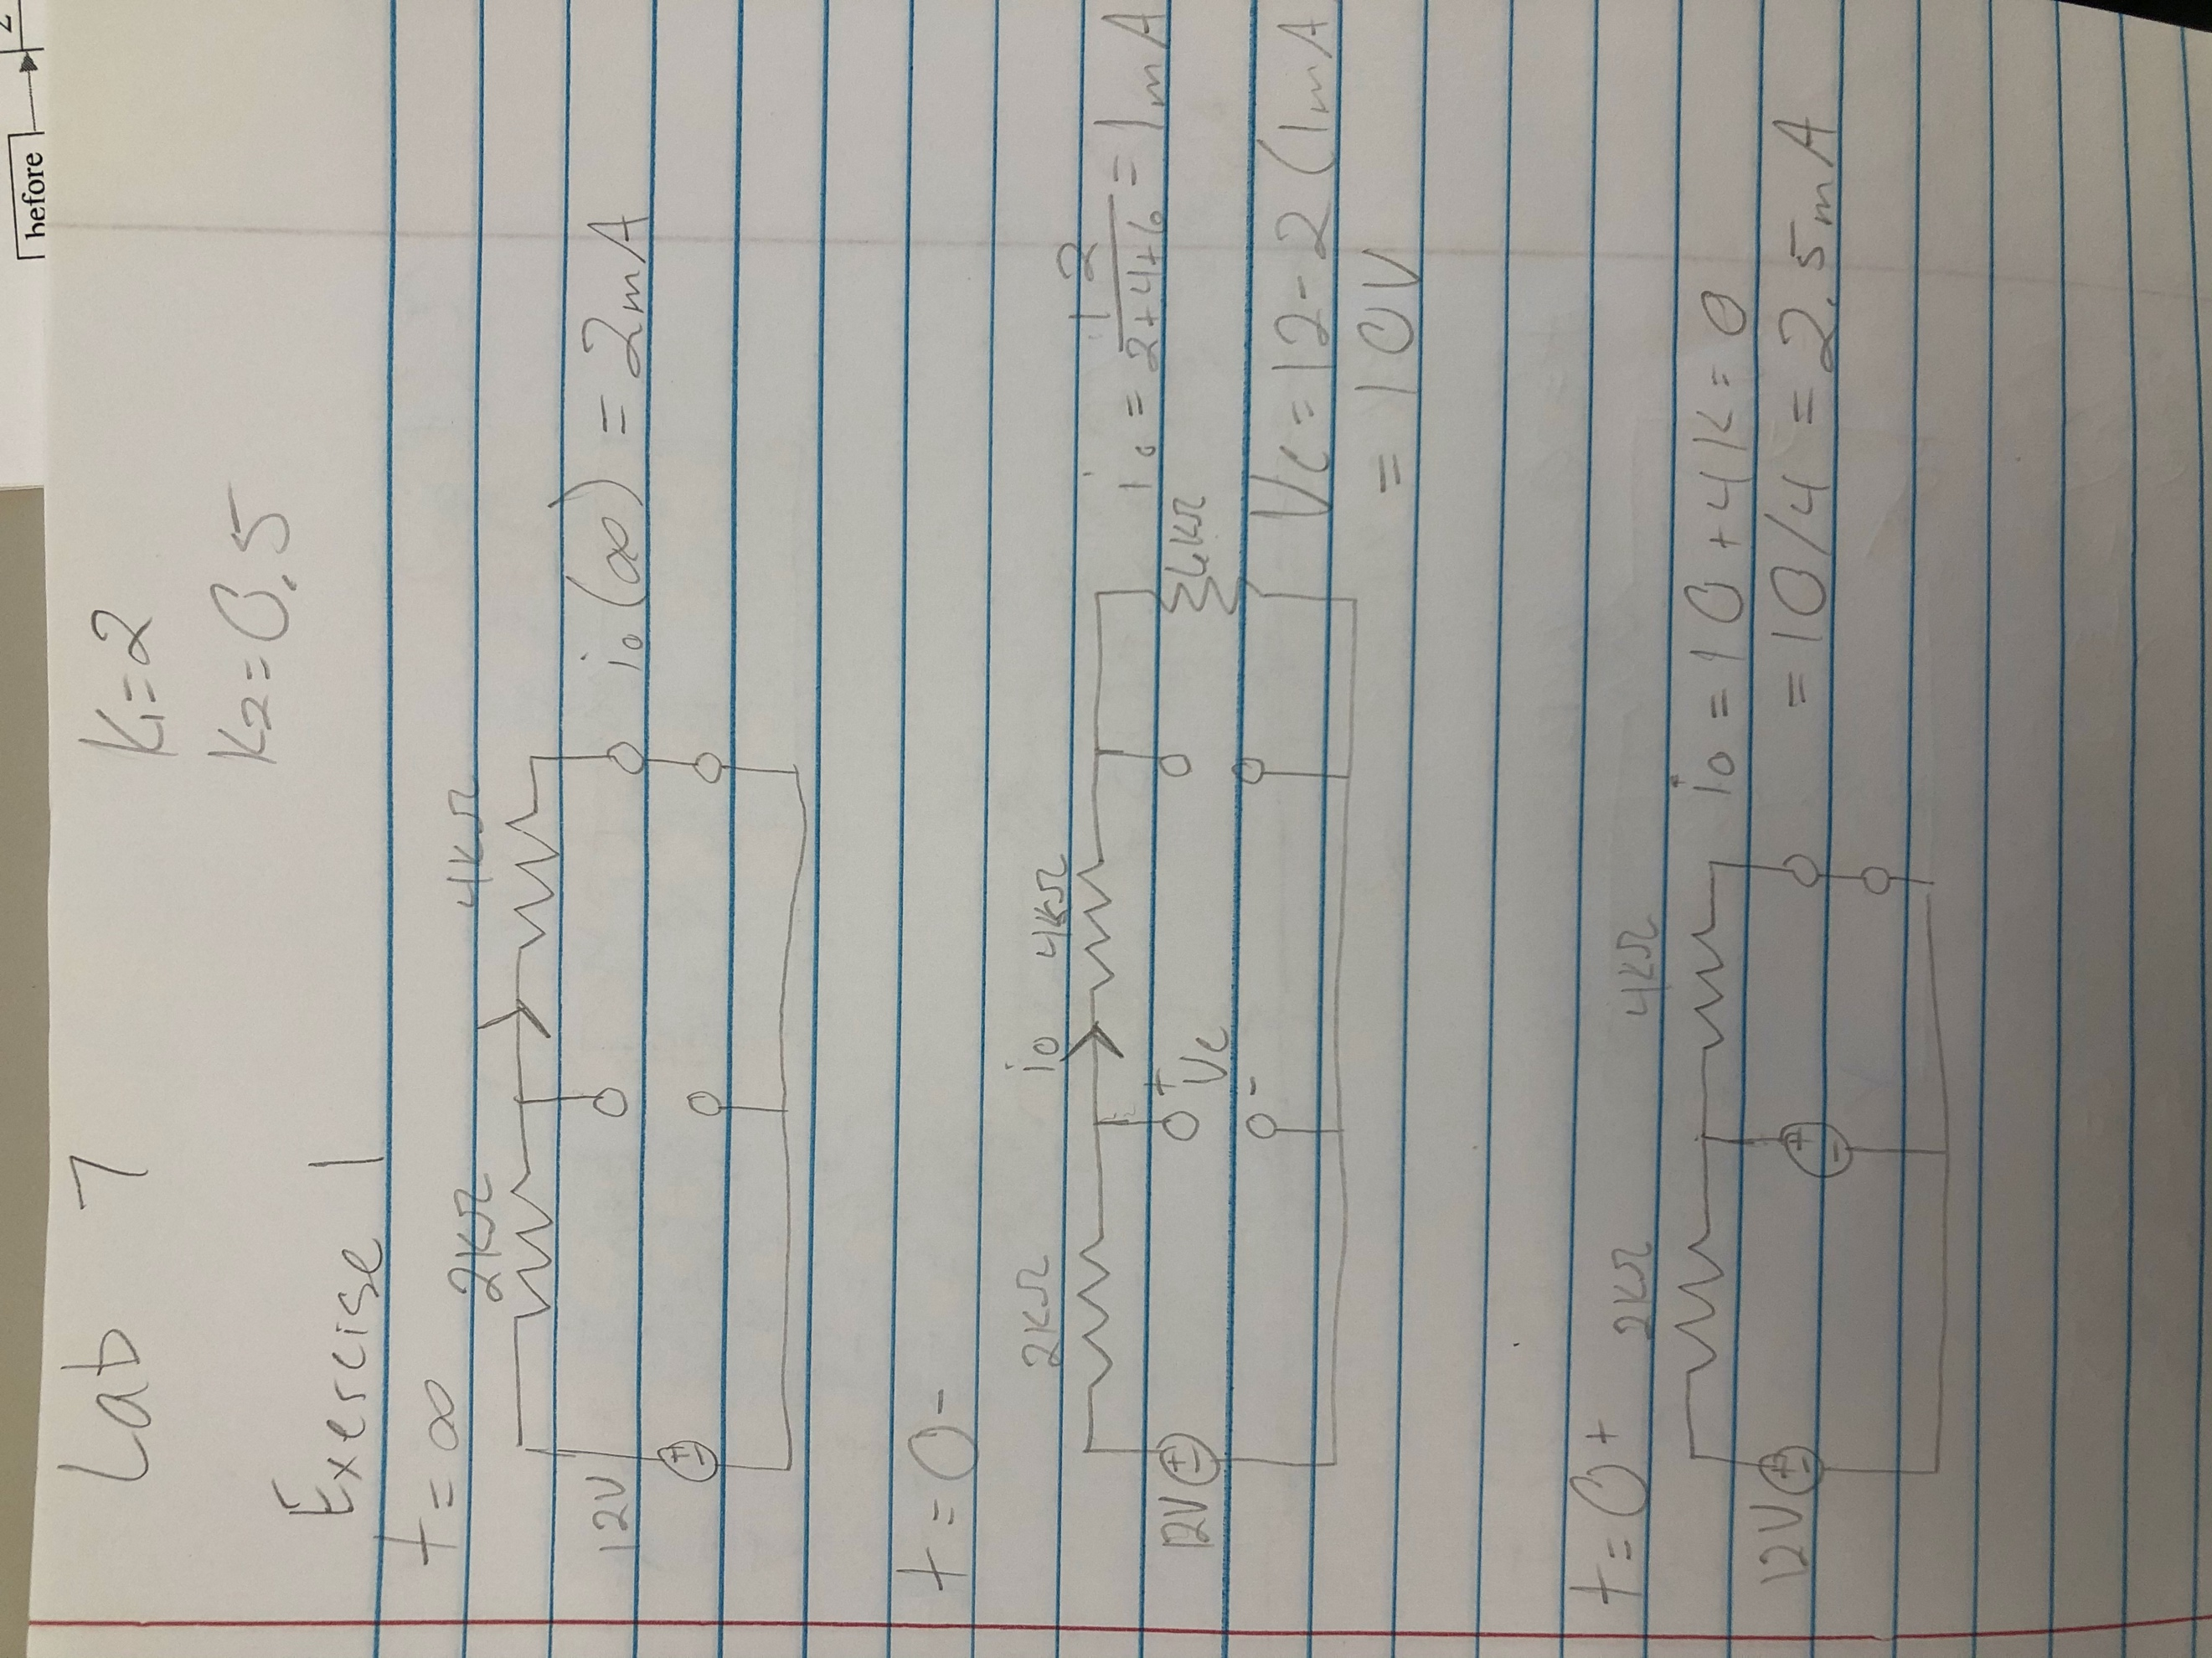 before
2
Lab 7
K1=2
K2=0.5
Exercise 1
t=∞
2KΩ
4KΩ
12V
+
-
i0(∞)=2mA
t=0-
2KΩ
i0
4KΩ
12V
+
-
+
Vc
-
6KΩ
i0 = 12/(2+4+6) = 1mA
Vc=12-2(1mA
= 10V
t=0+
2KΩ
4KΩ
12V
+
-
+
-
i0=10+4K=0
=10/4=2.5mA